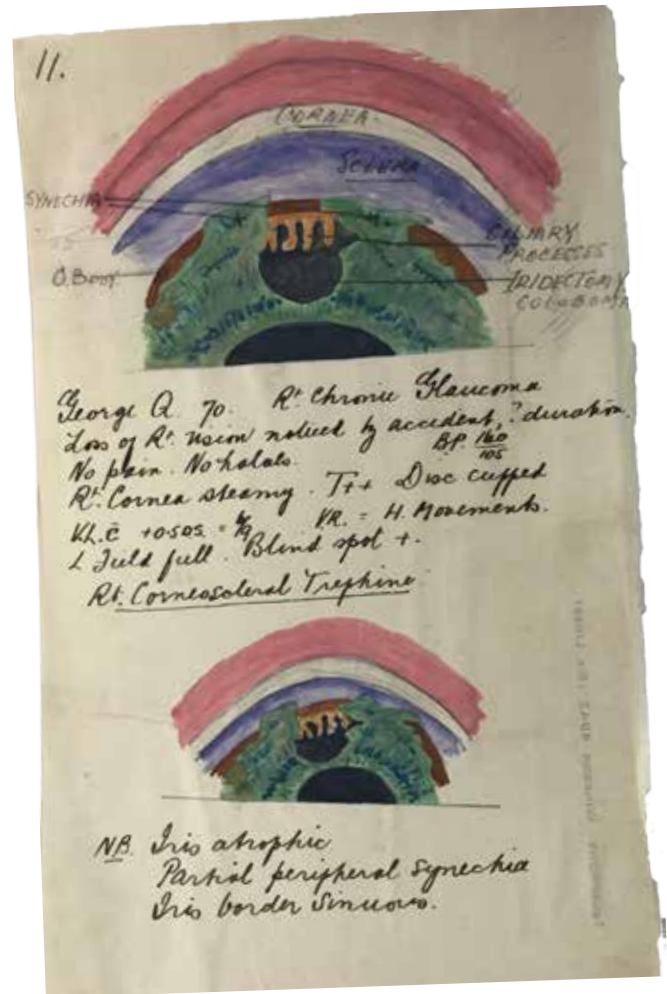 11.
CORNEA
SCLERA
SYNECHIA
C. BODY
CILIARY
PROCESSES
IRIDECTOMY
COLOBOMA
George Q. 70. Rt. Chronic Glaucoma
Loss of Rt. vision noticed by accident, ? duration.
No pain. No halos. BP. 160/105
Rt. Cornea steamy. T++ Disc cupped
VL. c̄ +0.50s = VR. = H. Movements.
L Field full. Blind spot +.
Rt. Corneoscleral Trephine.
NB. Iris atrophic
Partial peripheral synechia
Iris border sinuous.